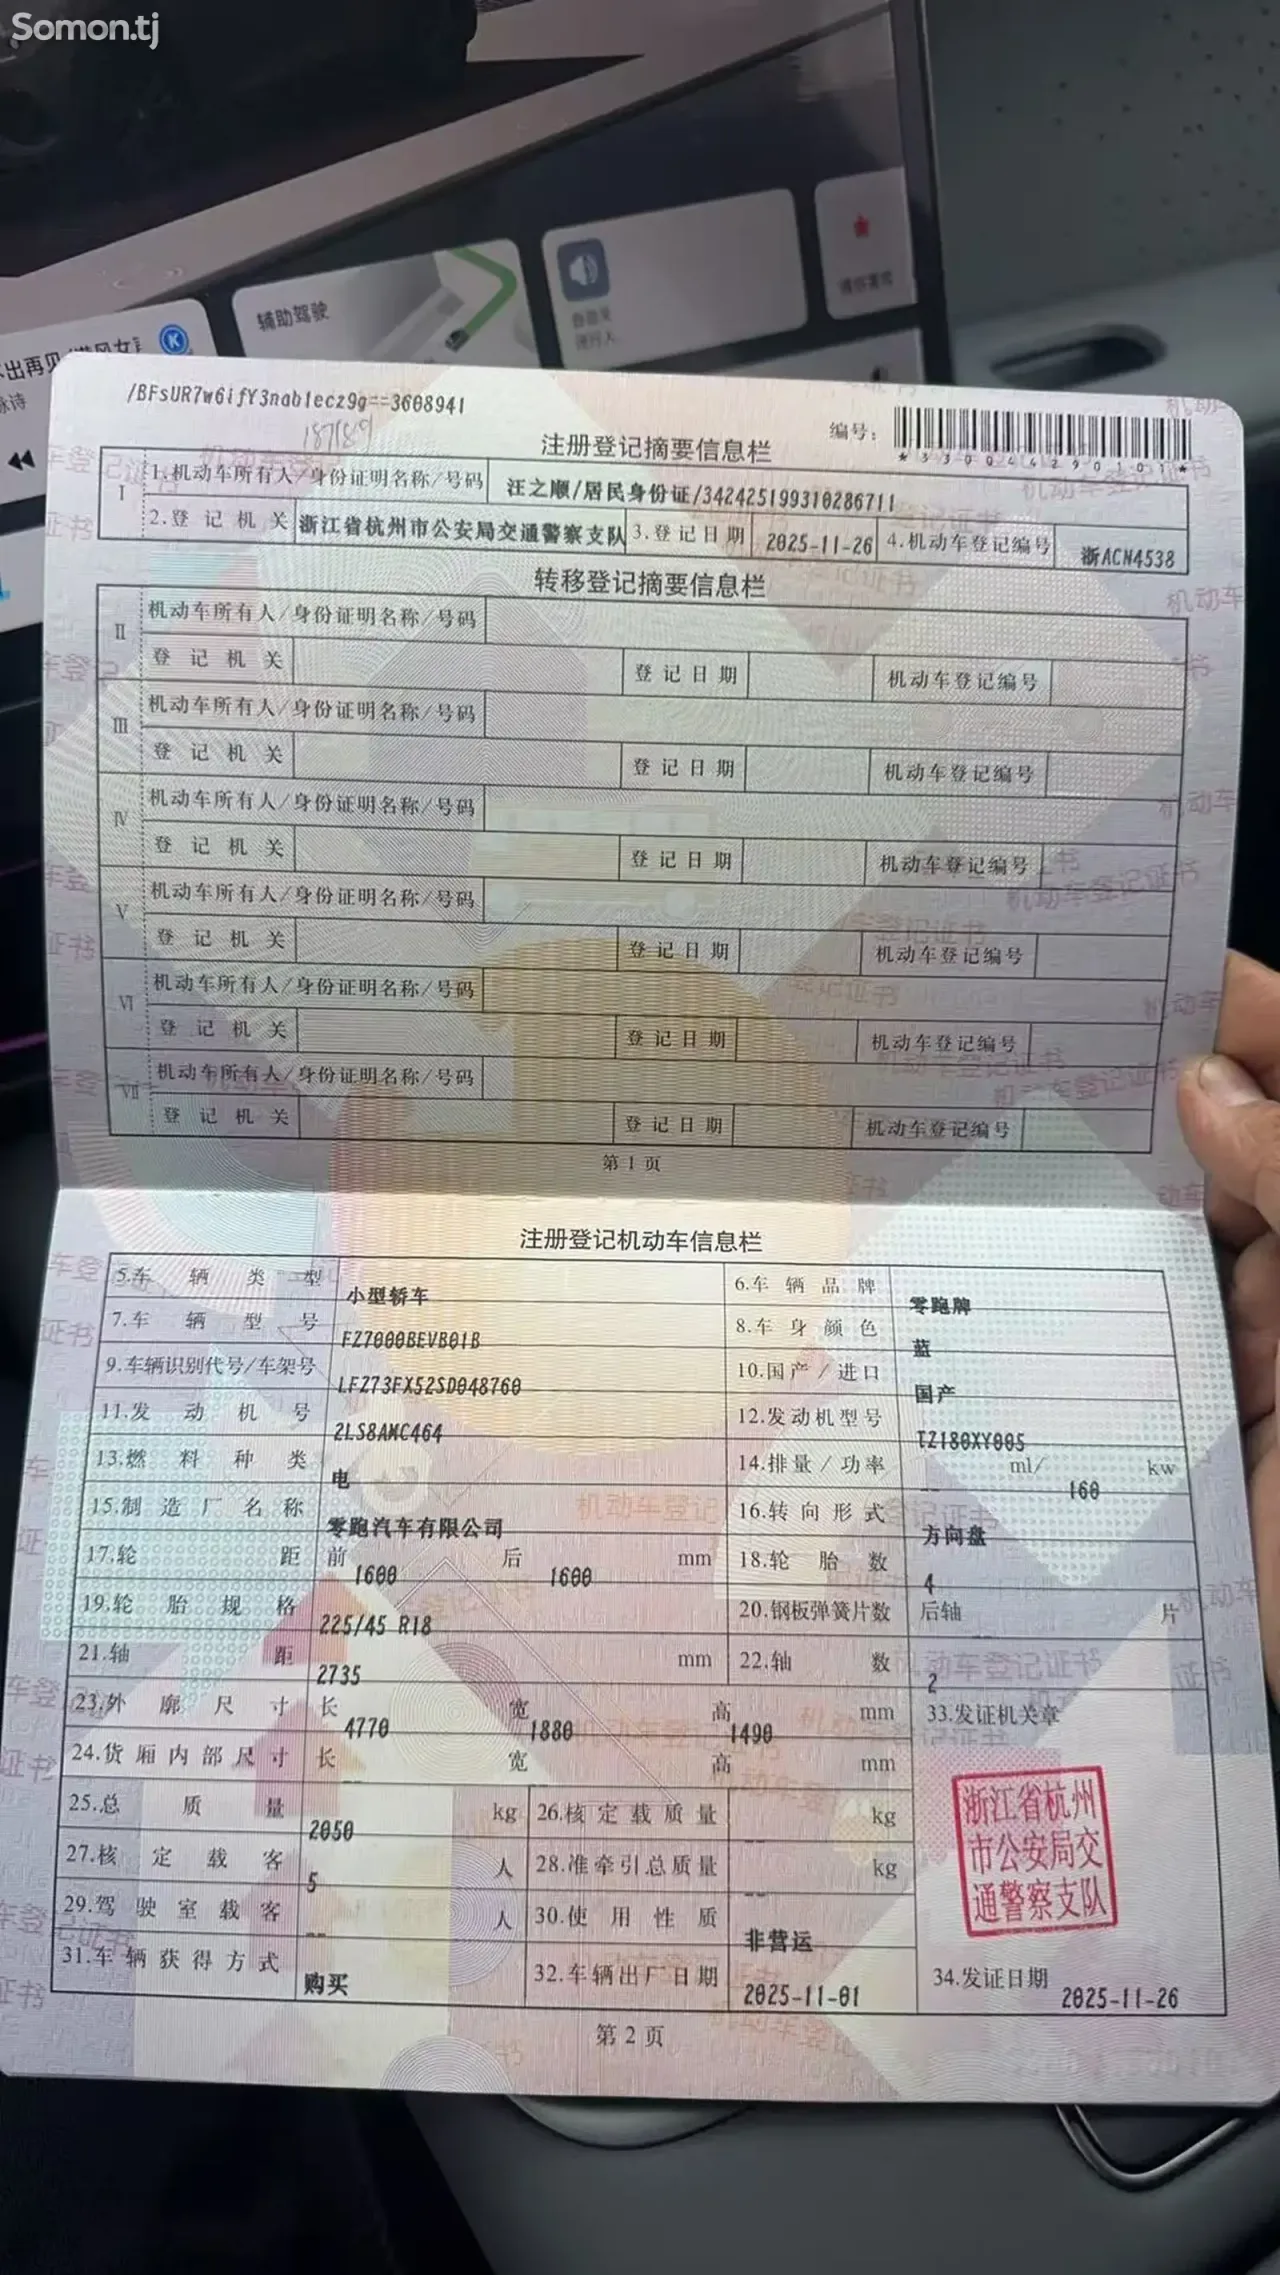 Somon.tj
辅助驾驶
/BFsUR7w6ifY3nab1ecz9g==3608941
187189
注册登记摘要信息栏
编号：
*330044290101*
I
1.机动车所有人/身份证明名称/号码 汪之顺/居民身份证/342425199310286711
2.登记机关 浙江省杭州市公安局交通警察支队 3.登记日期 2025-11-26 4.机动车登记编号 浙ACN4538
转移登记摘要信息栏
II 机动车所有人/身份证明名称/号码
登记机关 登记日期 机动车登记编号
III 机动车所有人/身份证明名称/号码
登记机关 登记日期 机动车登记编号
IV 机动车所有人/身份证明名称/号码
登记机关 登记日期 机动车登记编号
V 机动车所有人/身份证明名称/号码
登记机关 登记日期 机动车登记编号
VI 机动车所有人/身份证明名称/号码
登记机关 登记日期 机动车登记编号
VII 机动车所有人/身份证明名称/号码
登记机关 登记日期 机动车登记编号
第1页
注册登记机动车信息栏
5.车辆类型 小型轿车 6.车辆品牌 零跑牌
7.车辆型号 FZ7000BEVB01B 8.车身颜色 蓝
9.车辆识别代号/车架号 LFZ73FX52SD048760 10.国产/进口 国产
11.发动机号 2LS8AMC464 12.发动机型号 TZ180XY005
13.燃料种类 电 14.排量/功率 -- ml/ 160 kw
15.制造厂名称 零跑汽车有限公司 16.转向形式 方向盘
17.轮距 前 1600 后 1600 mm 18.轮胎数 4
19.轮胎规格 225/45 R18 20.钢板弹簧片数 后轴 -- 片
21.轴距 2735 mm 22.轴数 2
23.外廓尺寸 长 4770 宽 1880 高 1490 mm 33.发证机关章
24.货厢内部尺寸 长 -- 宽 -- 高 mm
25.总质量 2050 kg 26.核定载质量 -- kg
27.核定载客 5 人 28.准牵引总质量 -- kg
29.驾驶室载客 -- 人 30.使用性质 非营运
31.车辆获得方式 购买 32.车辆出厂日期 2025-11-01 34.发证日期 2025-11-26
浙江省杭州
市公安局交
通警察支队
第2页